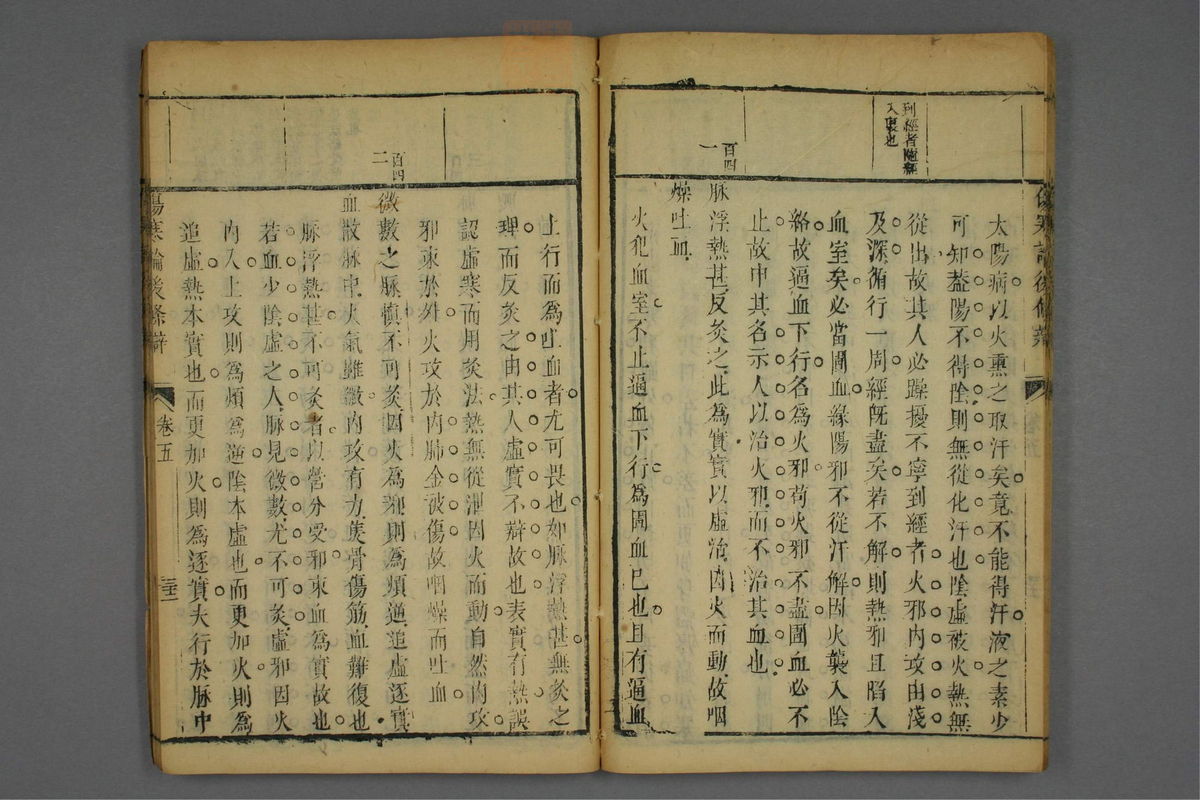 傷寒論後條辨
到經者隨經
入裏也
太陽病以火熏之取汗矣竟不能得汗液之素少
可知葢陽不得陰則無從化汗也陰虛被火熱無
從出故其人必躁擾不寧到經者火邪內攻由淺
及深循行一周經旣盡矣若不解則熱邪且陷入
血室矣必當圊血緣陽邪不從汗解因火襲入陰
絡故逼血下行名為火邪苟火邪不盡圊血必不
止故申其名示人以治火邪而不治其血也
百四
一
脉浮熱甚反灸之此為實實以虛治因火而動故咽
燥吐血
火犯血室不止逼血下行為圊血已也且有逼血
上行而為吐血者尤可畏也如脉浮熱甚無灸之
理而反灸之由其人虛實不辯故也表實有熱誤
認虛寒而用灸法熱無從泄因火而動自然內攻
邪束於外火攻於內肺金被傷故咽燥而吐血
百四
二
微數之脉慎不可灸因火為邪則為煩逆追虛逐實
血散脉中火氣雖微內攻有力焦骨傷筋血難復也
脉浮熱甚不可灸者以營分受邪束血為實故也
若血少陰虛之人脉見微數尤不可灸虛邪因火
內入上攻則為煩為逆陰本虛也而更加火則為
追虛熱本實也而更加火則為逐實夫行於脉中
傷寒論後條辨
卷五